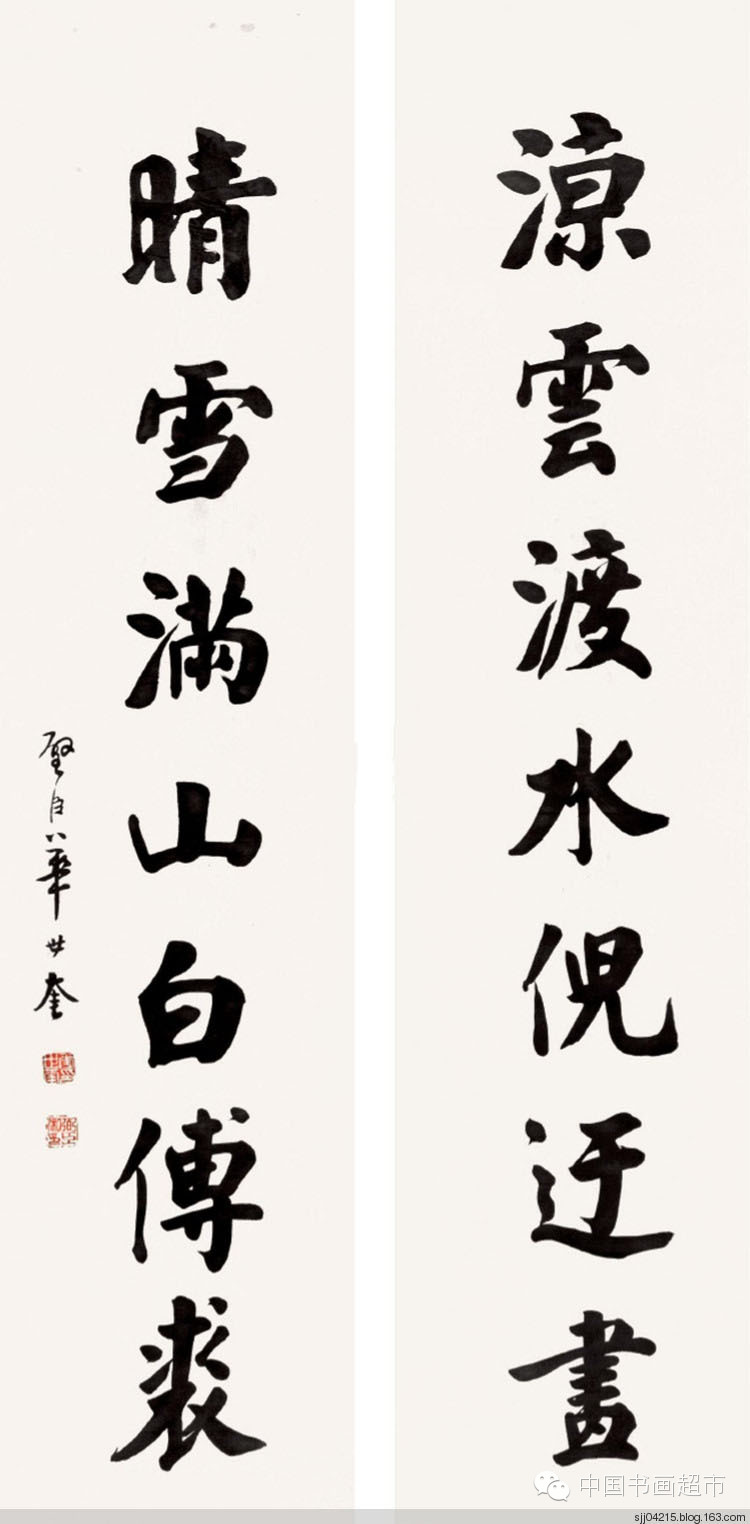 涼雲渡水倪迂畫
晴雪滿山白傅裘
璧臣華世奎
中国书画超市
sjj04215.blog.163.com